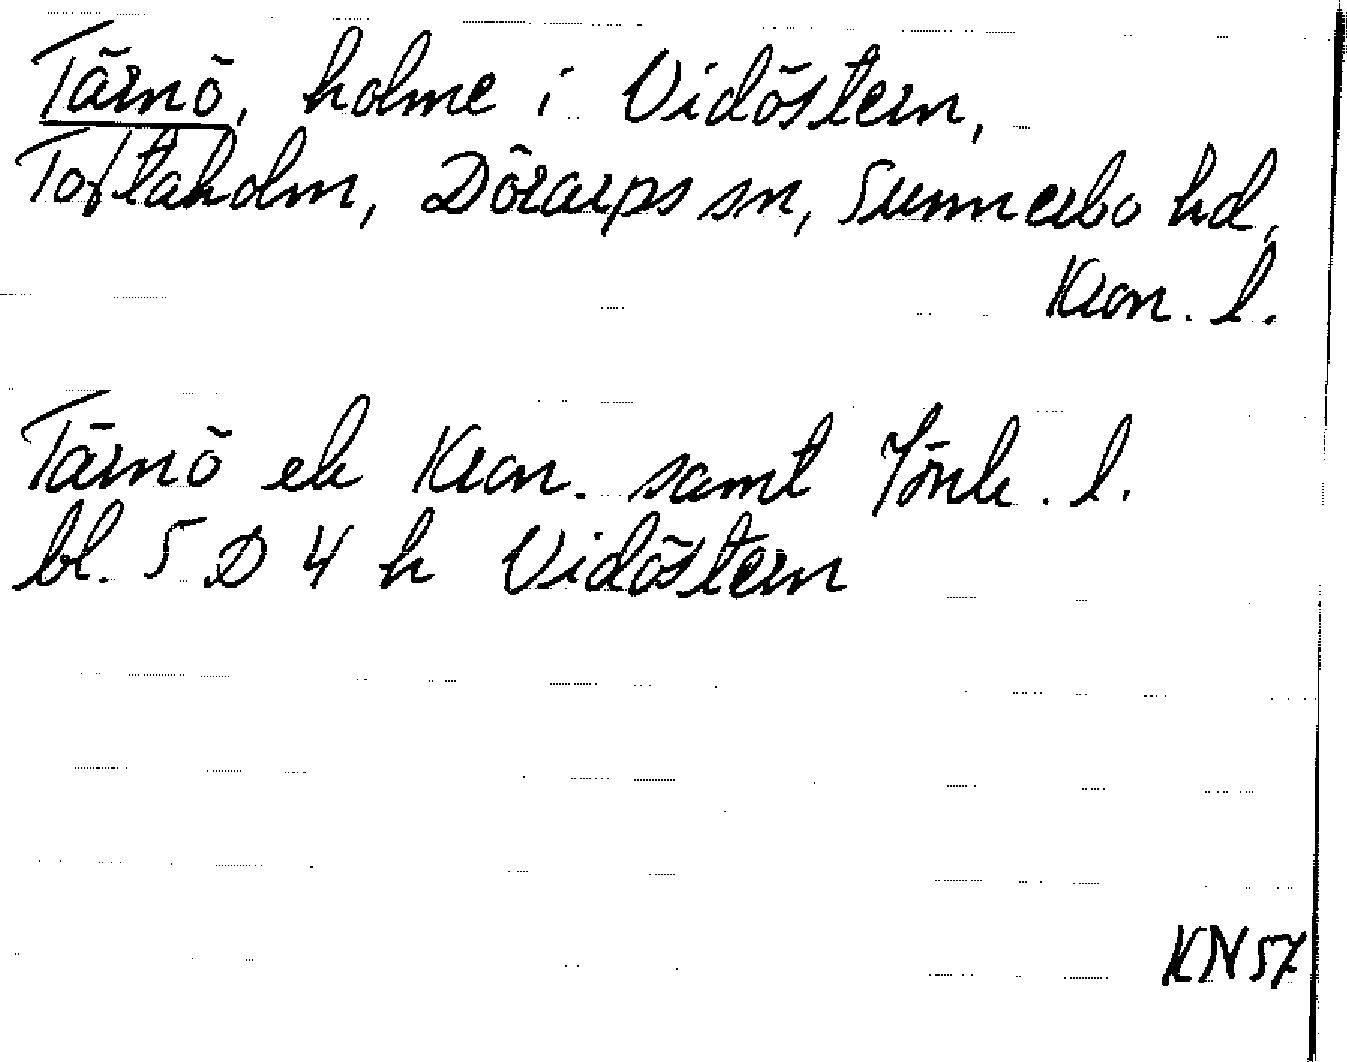 Tärnö, holme i Vidöstern,
Toftaholm, Dörarps sn, Sunnerbo hd,
Kron. l.
Tärnö ek Kron. samt Jönk. l.
bl. 5 D 4 h Vidöstern
KN57